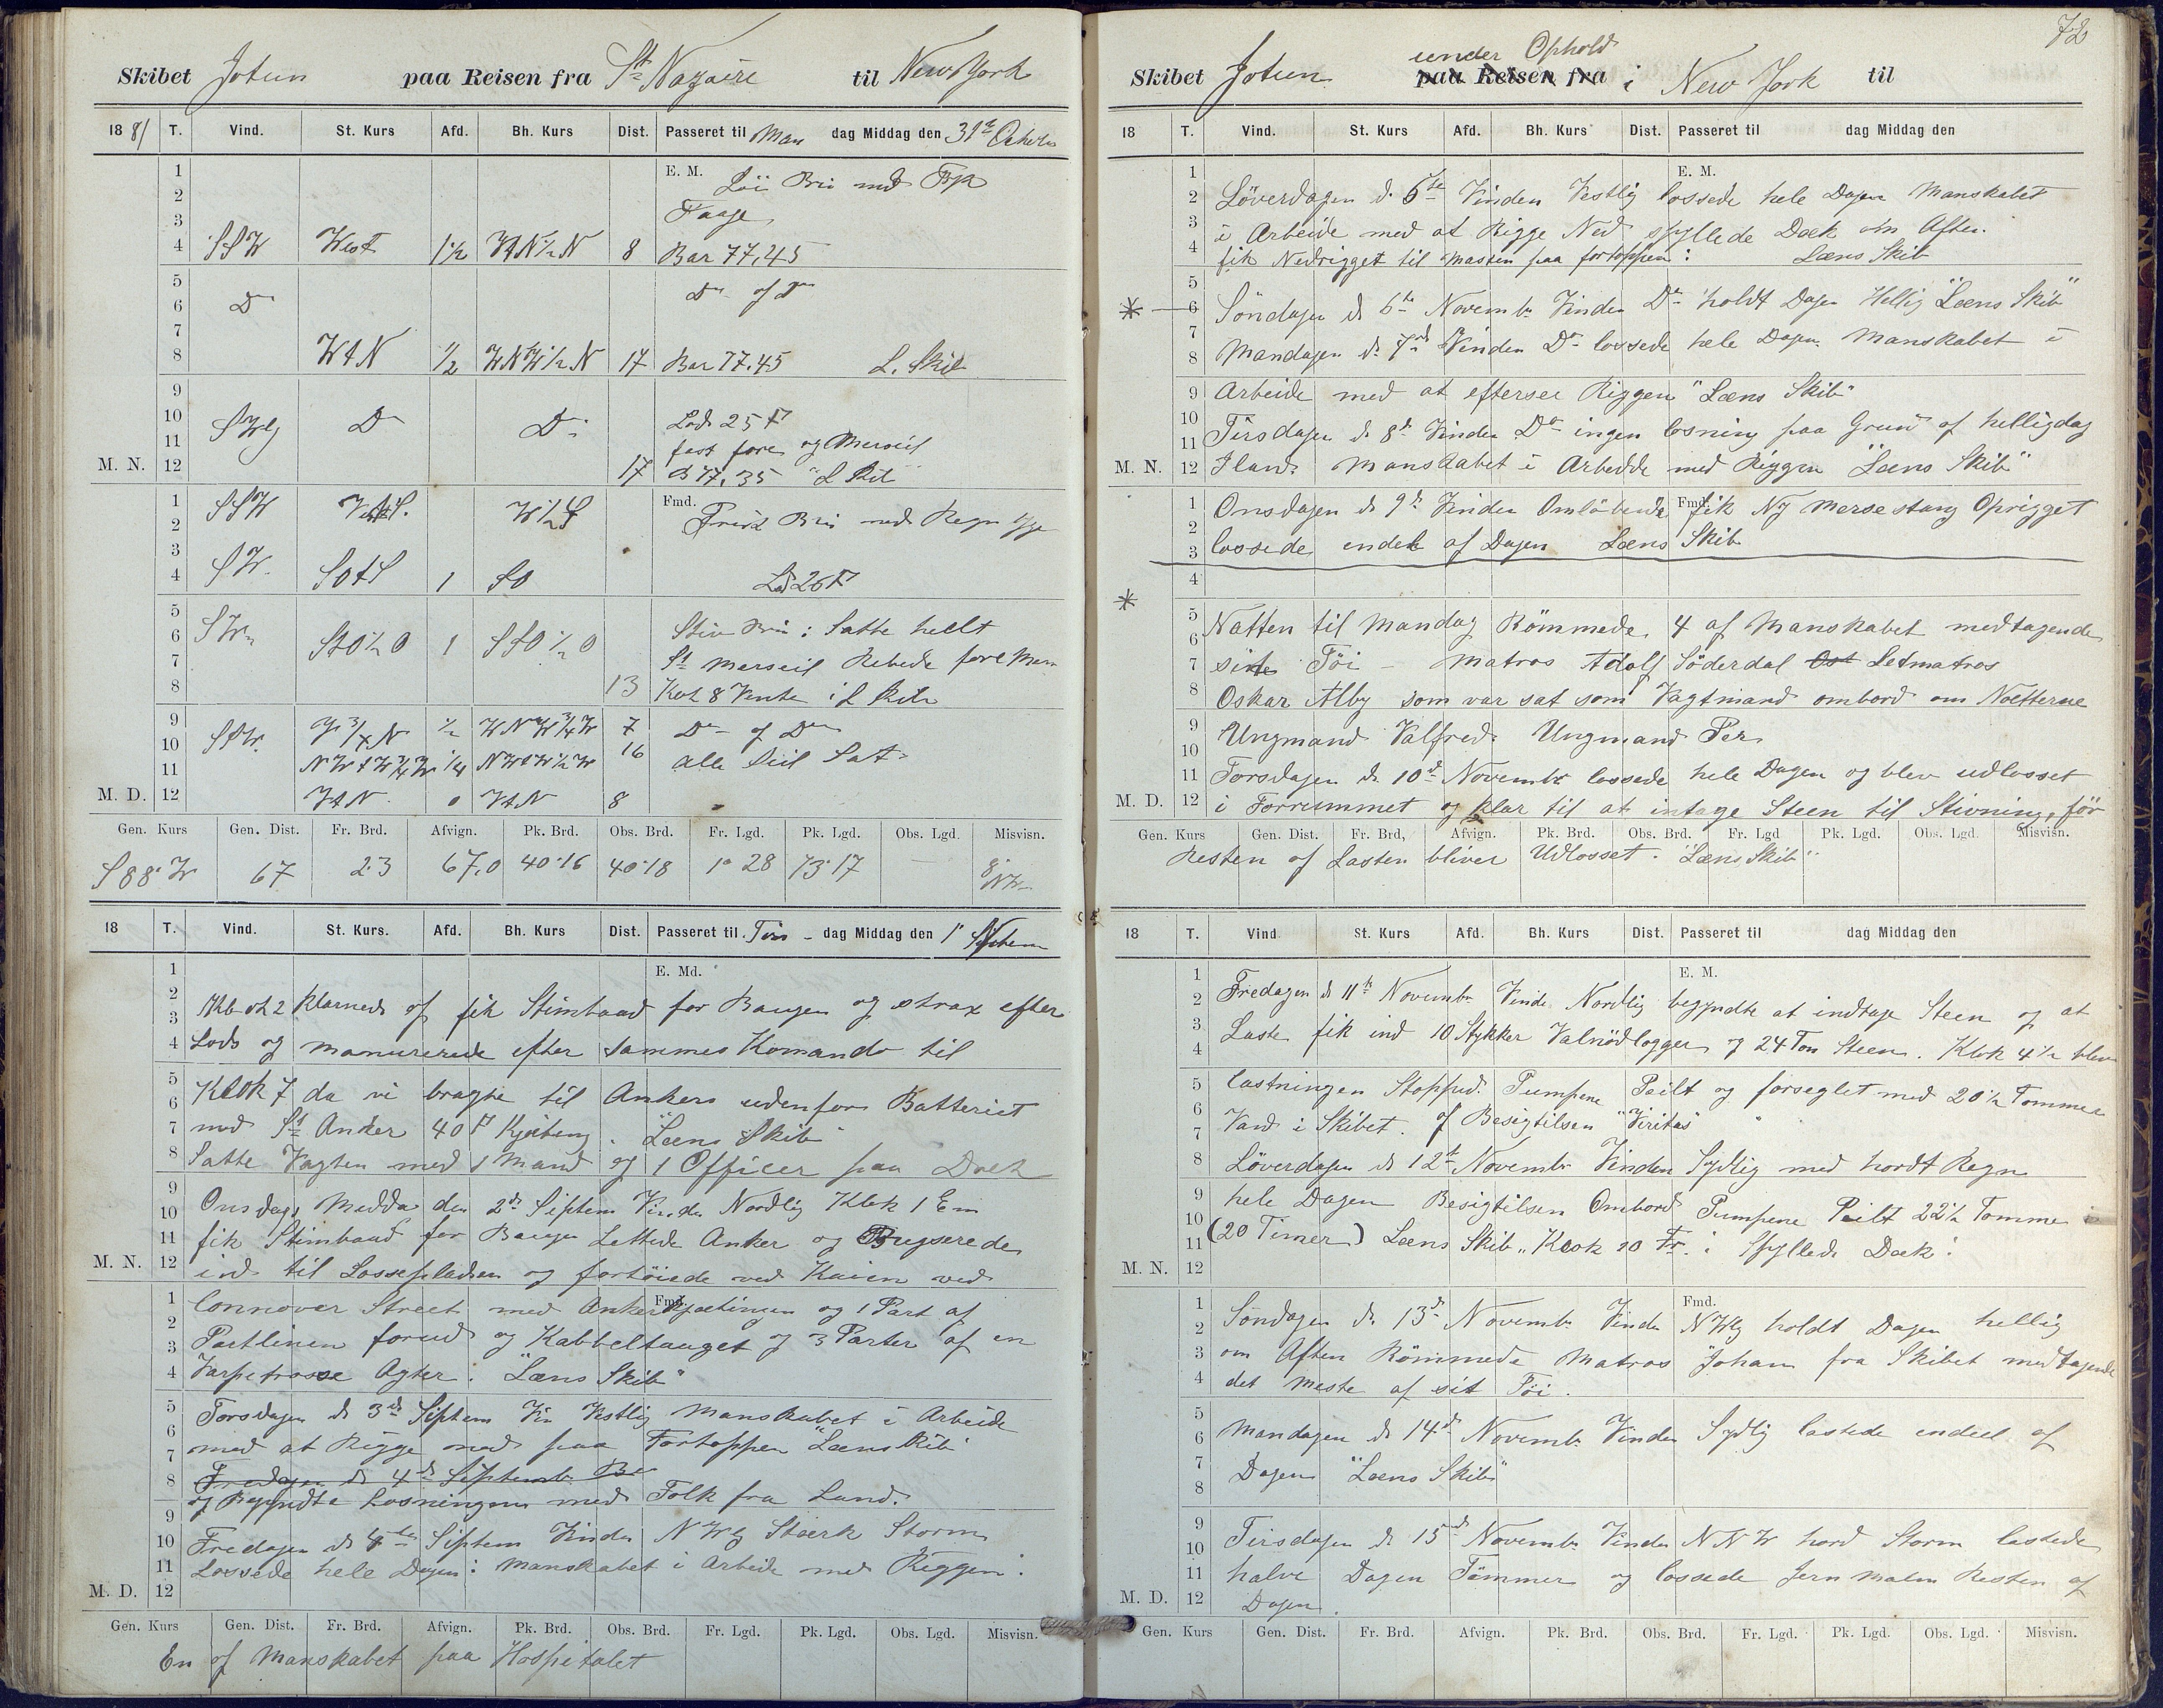 Skibet Jotun paa Reisen fra St Nazaire til New York
18 81 T. Vind. St. Kurs Afd. Bh. Kurs Dist. Passeret til Man dag Middag den 31te
1 E. M. Löi Bris med
2 Taage
3
4 SSW West 1½ WtN½N 8 Bar 77,45
5
6 Do Do of Do
7
8 WtN ½ WNW½N 17 Bar 77.45 L. Skib
9
10 SWlig Do Do Lod 25 F
11 fast fore og Merseil
M. N. 12 17 B 77,35 "L Skib"
1 SSW W½S Fmd. Frisk Bris med Regn
2
3
4 SW. SOtS 1 SO Lod 26 F
5
6 SW StO½O 1 SSO½O Stiv Bris : Satte helt
7 St Merseil Rebede fore Mers
8 13 Kok 8 Vente i L Skib
9 SSW W¾N ½ WNW¾W 7 Do of Do
10 NWtW¾W ¼ NWtW½W 16 alle Seil Sat
11
M. D. 12 WtN 0 WtN 8
Gen. Kurs Gen. Dist. Fr. Brd. Afvign. Pk. Brd. Obs. Brd. Fr. Lgd. Pk. Lgd. Obs. Lgd. Misvisn.
S 88° W 67 2.3 67,0 40°16 40°18 1° 28 73°17 8° NW
18 T. Vind. St. Kurs. Afd. Bh. Kurs Dist. Passeret til Tirs - dag Middag den 1ste
1 E. Md.
2
3 klarnede of fik Stimbaad for Baugen og strax efter
4 Lods og manurerede efter sammes Komando til
5
6 Klok 7 da vi bragte til Ankers udenfor Batteriet
7 med St Anker 40 F Kjetting. "Læns Skib"
8 Satte Vagten med 1 Mand og 1 Officer paa Dæk
9
10 Onsdags Midda den 2de Siptem Vinden Nordlig Klok 1 Em
11 fik Stimbaad for Baugen Lettede Anker og Bugserede
M. N. 12 ind til Lossepladsen og fortöiede ved Kaien ved
1 Connover Street med Anker Fmd. Kjætingen og 1 Part af
2
3 Partlinen forud og Kabbeltauget og 3 Parter af en
4 Varpetrosse Agter. "Læns Skib"
5 Torsdagen d 3de Siptem Vin Vestlig Manskabet i Arbeide
6
7 med at Rigge ned paa Fortoppen "Læns Skib"
8 Fredagen d 4de Siptemb. Be
9 og Begyndte Losningen med Folk fra Land.
10 Fredagen d 4de Siptem Vinden NWlig Stærk Storm
11 Lossede hele Dagen : Manskabet i Arbeide med Riggen :
M. D. 12
Gen. Kurs Gen. Dist. Fr. Brd. Afvign. Pk. Brd. Obs. Brd. Fr. Lgd. Pk. Lgd. Obs. Lgd. Misvisn.
En of Manskabet paa Hospitalet
72
under Ophold
Skibet Jotun paa Reisen fra i New York til
18 T. Vind. St. Kurs Afd. Bh. Kurs Dist. Passeret til dag Middag den
1 E. M.
2 Löverdagen d. 5te Vinden Vestlig lossede hele Dagen Manskabet
3 i Arbeide med at Rigge Ned spyllede Dæk om Aften.
4 fik Nedrigget til Masten paa fortoppen : Læns Skib
5
* 6 Söndagen d 6te Novembr Vinden Do holdt Dagen Hellig "Læns Skib"
7
8 Mandagen d. 7de Vinden Do lossede hele Dagen Manskabet i
9 Arbeide med at efterser Riggen "Læns Skib"
10
11 Tirsdagen d 8de Vinden Do ingen losning paa Grund af helligdag
M. N. 12 Iland. Manskabet i Arbedde med Riggen "Læns Skib"
1 Onsdagen d 9de Vinden Omlöbende Fmd. fik Ny Mersestang Oprigget
2
3 lossede endel af Dagen Læns Skib
4
*
5
6 Natten til Mandag Römmede 4 af Manskabet medtagende
7 sine Töi – Matros Adolf Söderdal Ost Letmatros
8 Oskar Alby som var sat som Vagtmand ombord om Nætterne
9 Ungmand Valfred. Ungmand Per
10
11 Torsdagen d. 10de Novembr lossede hele Dagen og blev udlosset
M. D. 12 i Forrummet og klar til at intage Steen til Stivning, för
Gen. Kurs Gen. Dist. Fr. Brd, Afvign. Pk. Brd. Obs. Brd. Fr. Lgd Pk. Lgd. Obs. Lgd. Misvisn.
Resten af Lasten bliver Udlosset. "Læns Skib"
18 T. Vind St. Kurs Afd. Bh. Kurs Dist. Passeret til dag Middag den
1 E. M.
2 Fredagen d 11te Novembr Vinde Nordlig begyndte at indtage Steen og at
3
4 Laste fik ind 10 Stykker Valnödlogger og 24 Ton Steen. Klok 4½ blev
5 lastningen Stoppet. Pumpene Peilt og forseglet med 20½ Tommer
6
7 Vand i Skibet. af Besigtilsen "Viritas"
8 Löverdagen d 12te Novembr Vinden Sydlig med hordt Regn
9 hele Dagen Besigtilsen Ombord Pumpene Peilt 22½ Tomme
10
11 (20 Timer) Læns Skib „ Klok 10 Fr. i Spyllede Dæk :
M. N. 12
1 Fmd.
2 Söndagen d. 13de Novembr Vinden NWlig holdt Dagen hellig
3 om Aften Römmede Matros Johan fra Skibet medtagende
4 det meste af sit Töi.
5
6 Mandagen d 14de Novembr Vinden Sydlig lastede endeel af
7 Dagen "Læns Skib"
8
9
10 Tirsdagen d 15de Novembr Vinden NNW hord Storm lastede
11 halve Dagen Tömmer og lossede Jern Malm Resten af
M. D. 12 Dagen.
Gen. Kurs Gen. Dist. Fr. Brd. Afvign. Pk. Brd. Obs. Brd. Fr. Lgd. Pk. Lgd. Obs. Lgd. Misvisn.